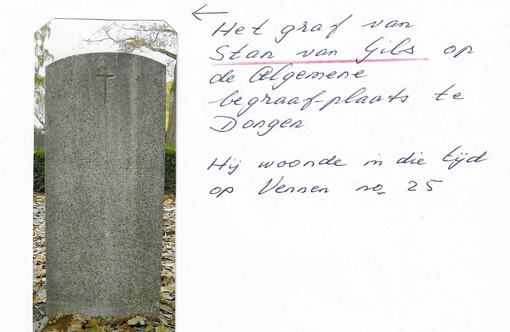 Het graf van
Stan van Gils op
de Algemene
begraaf-plaats te
Dongen
Hij woonde in die tijd
op Vennen no. 25